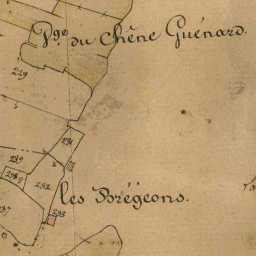 Pge du Chêne Guénard.
219
231
239
232
les Brégeons.
233